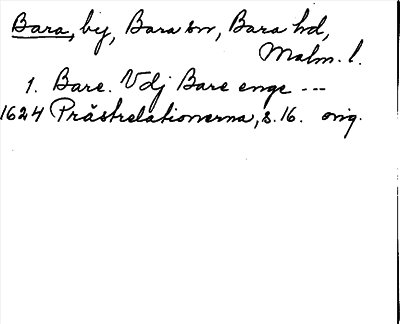 Bara, by, Bara sn, Bara hd,
Malm. l.
1. Bare. Vdj Bare enge ---
1624 Prästrelationerna, s. 16. orig.